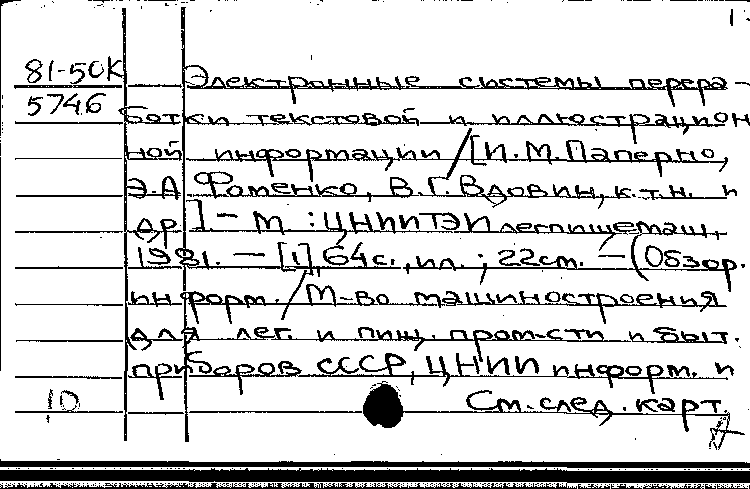 81-50К Электронные системы перера-
5746 ботки текстовой и иллюстрацион
ной информации / [И.М.Паперно,
Э.А Фоменко, В.Г.Вдовин, к.т.н. и
др] - М : ЦНИИТЭИлегпищемаш,
1981. - [1], 64с., ил. ; 22см. - (Обзор.
информ. / М-во машиностроения
для лег. и пищ. пром-сти и быт.
приборов СССР, ЦНИИ информ. и
10 См. след. карт.